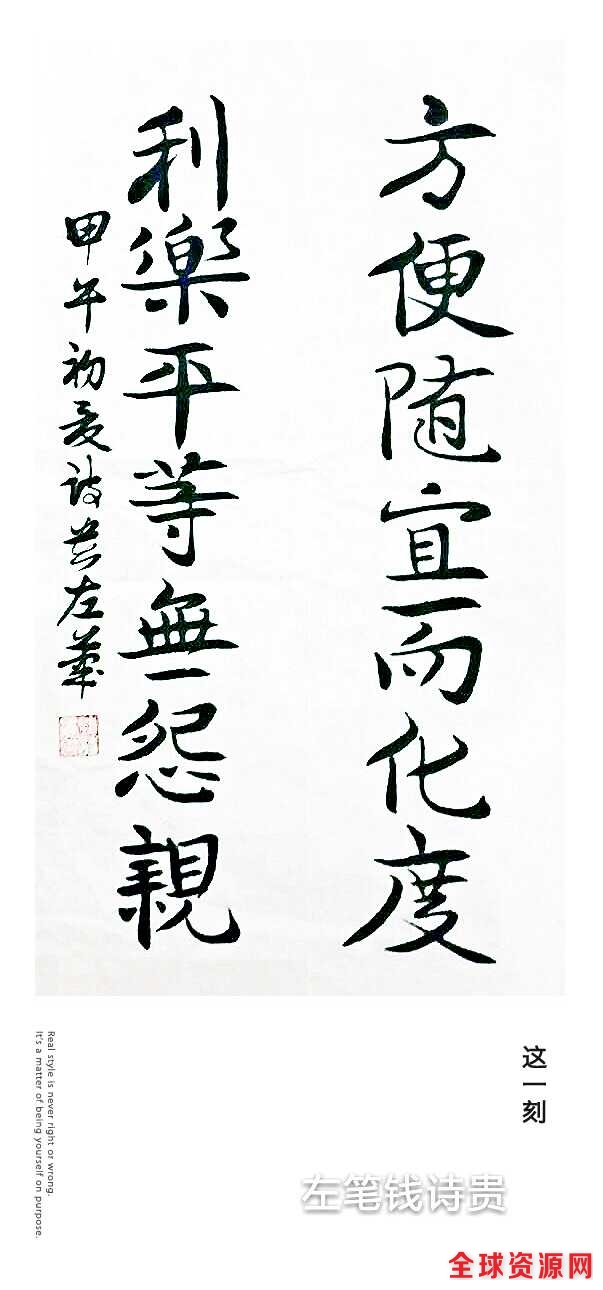 方便随宜而化度
利樂平等無怨親
甲午初夏诗贵左笔
这一刻
Real style is never right or wrong.
It's a matter of being yourself on purpose.
左笔钱诗贵
全球资源网